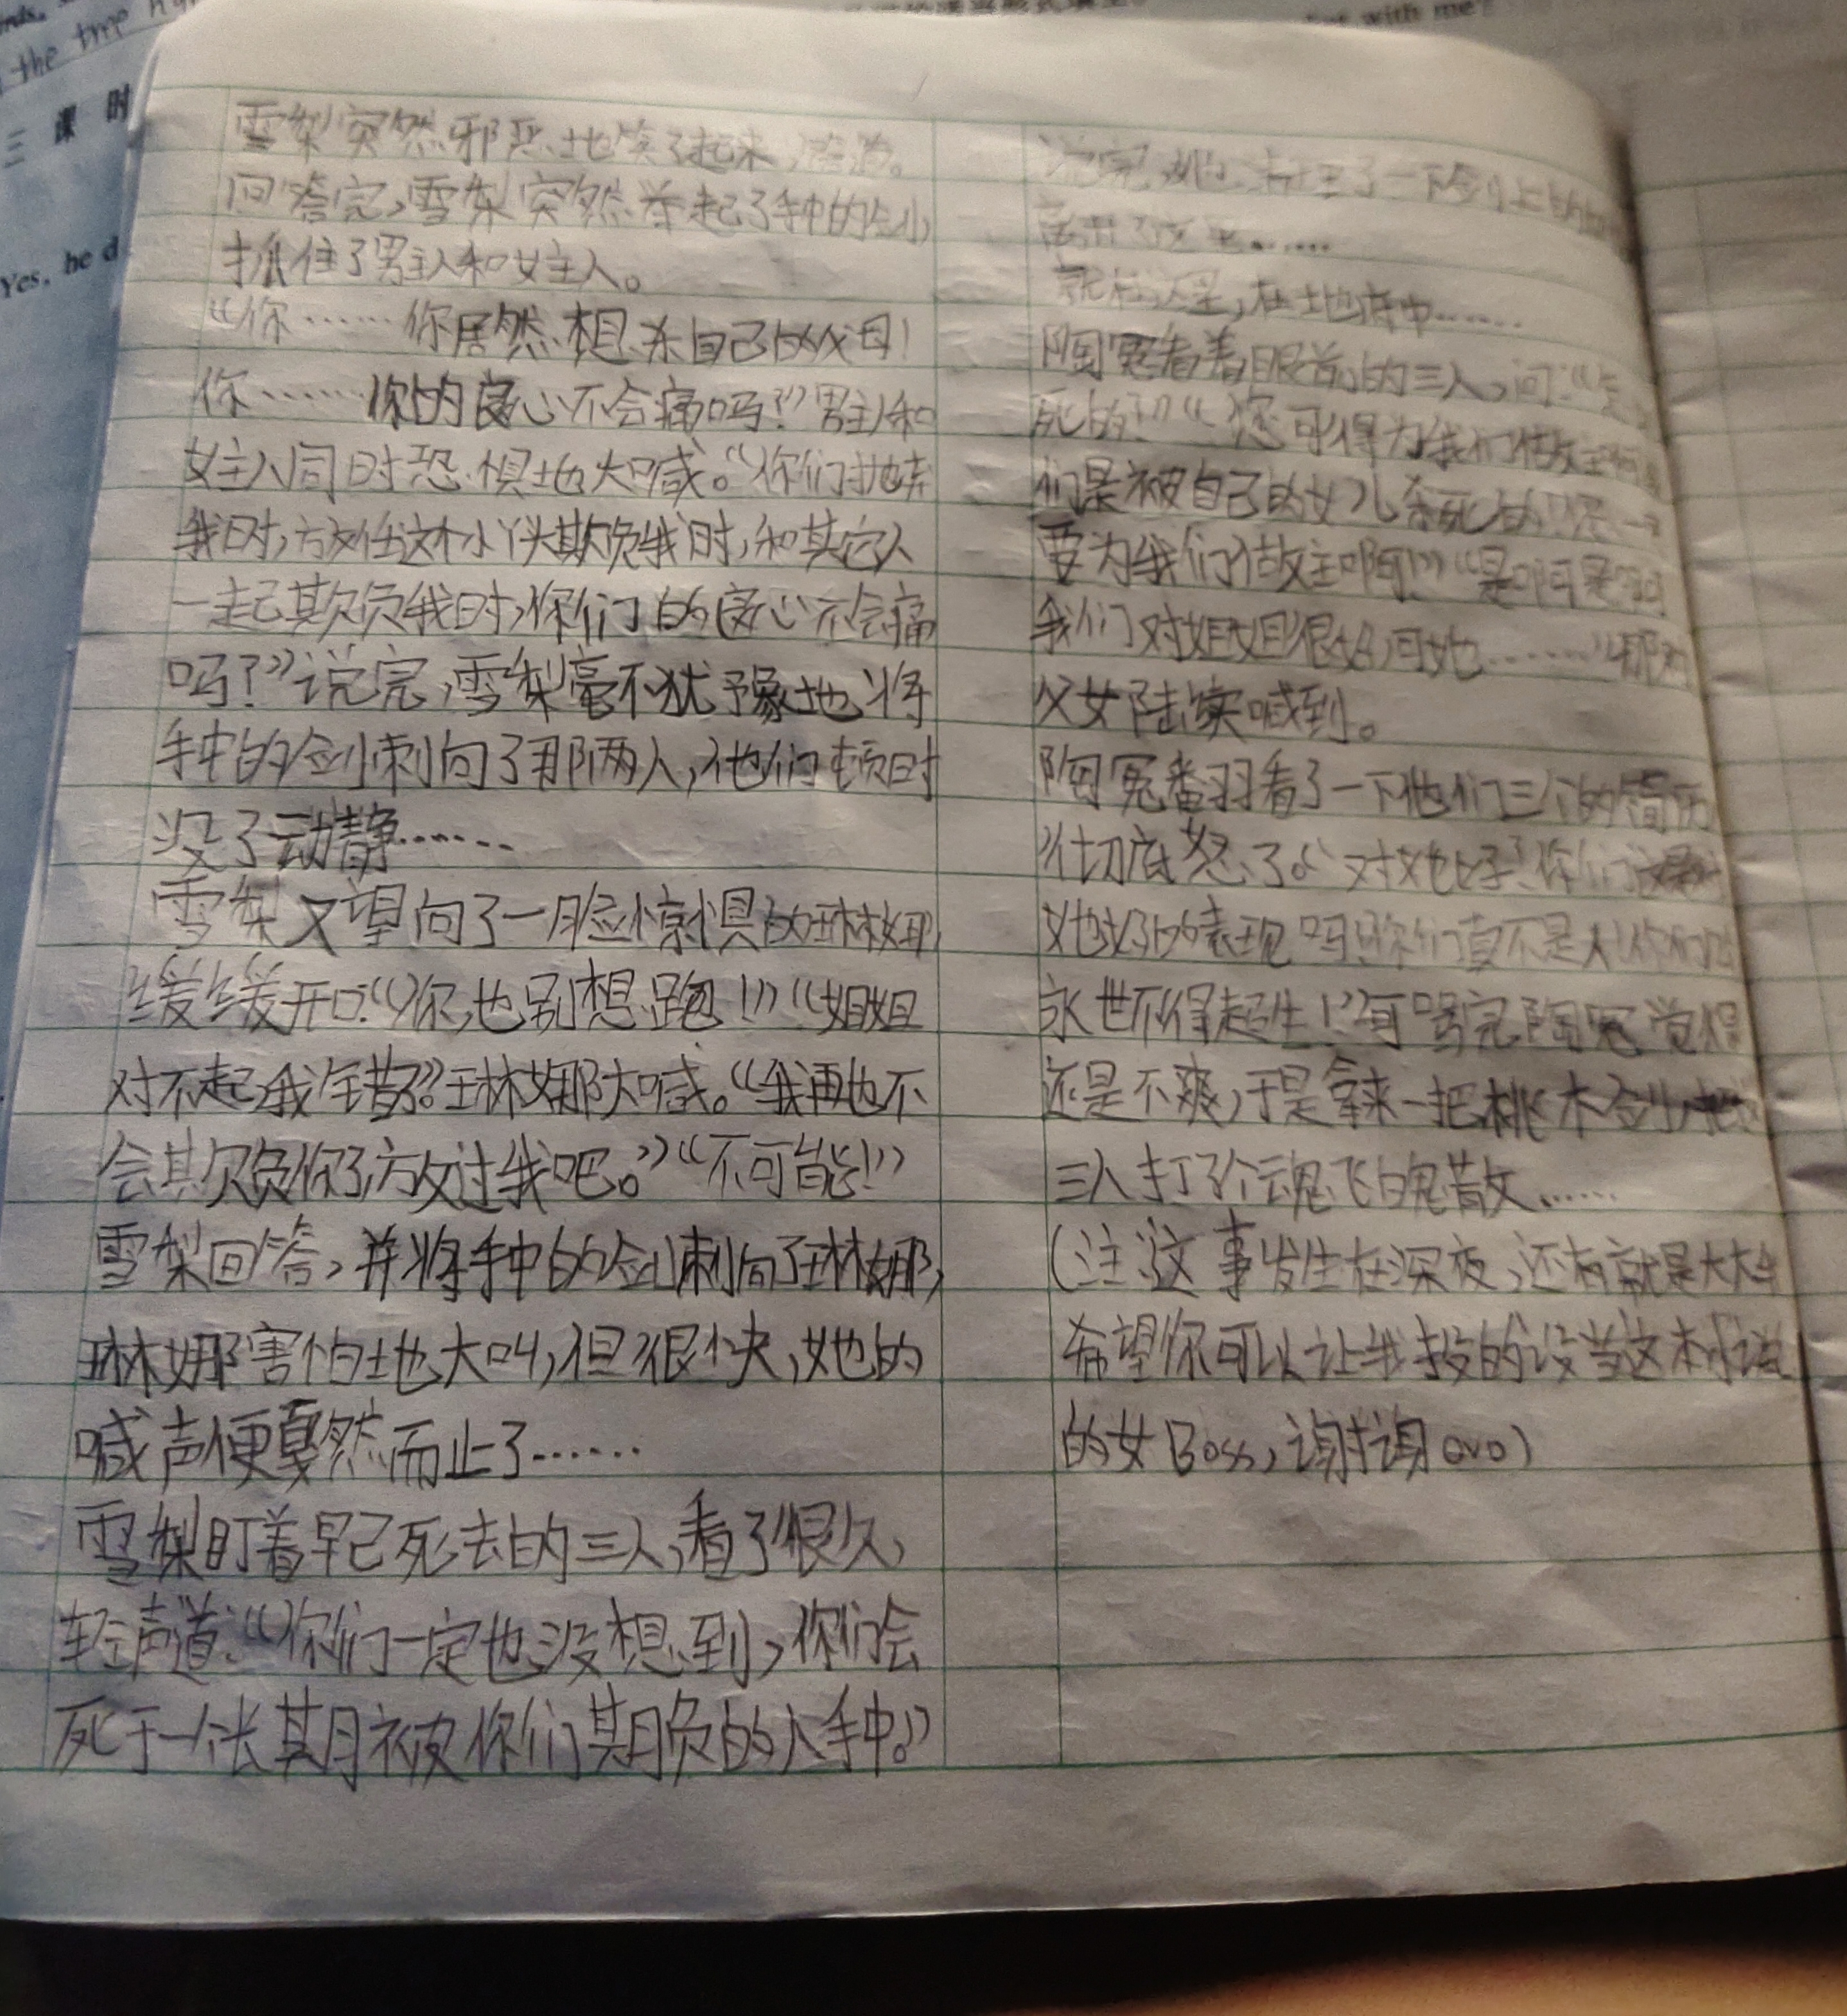 the tree
with me?
三 课 时
Yes, he d
雪梨突然邪恶地笑了起来,
回答完,雪梨突然举起了手中的剑,
抓住了男主人和女主人。
“你……你居然想杀自己的父母!
你……你的良心不会痛吗?”男主人和
女主人同时恐惧地大喊。“你们抛弃
我时,放任这个小丫头欺负我时,和其它人
一起欺负我时,你们的良心不会痛
吗?”说完,雪梨毫不犹豫地将
手中的剑刺向了那两人,他们顿时
没了动静……
雪梨又望向了一脸惊惧的琳娜,
缓缓开口:“你,也别想跑!”“姐姐
对不起,我错了”琳娜大喊。“我再也不
会欺负你了,放过我吧。”“不可能!”
雪梨回答,并将手中的剑刺向了琳娜,
琳娜害怕地大叫,但很快,她的
喊声便戛然而止了……
雪梨盯着早已死去的三人,看了很久,
轻声道:“你们一定也没想到,你们会
死于一个长期被你们期负的人手中。”
说完,她清理了一下剑上的
离开了这里……
就在这里,在地府中……
阎冤看着眼前的三人,问:“怎
死的?”“您可得为我们做主啊
们是被自己的女儿杀死的!您一
要为我们做主啊!”“是啊是啊
我们对姐姐很好,可她……”那对
父女陆续喊到。
阎冤翻看了一下他们三个的简历
彻底怒了。“对她好!你们这是对
她好的表现吗!你们真不是人!你们
永世不得超生!”骂完阎冤觉得
还是不爽,于是拿来一把桃木剑,把
三人打了个魂飞魄散……
(注:这事发生在深夜,还有就是大大
希望你可以让我投的设当这本小说
的女Boss,谢谢ovo)